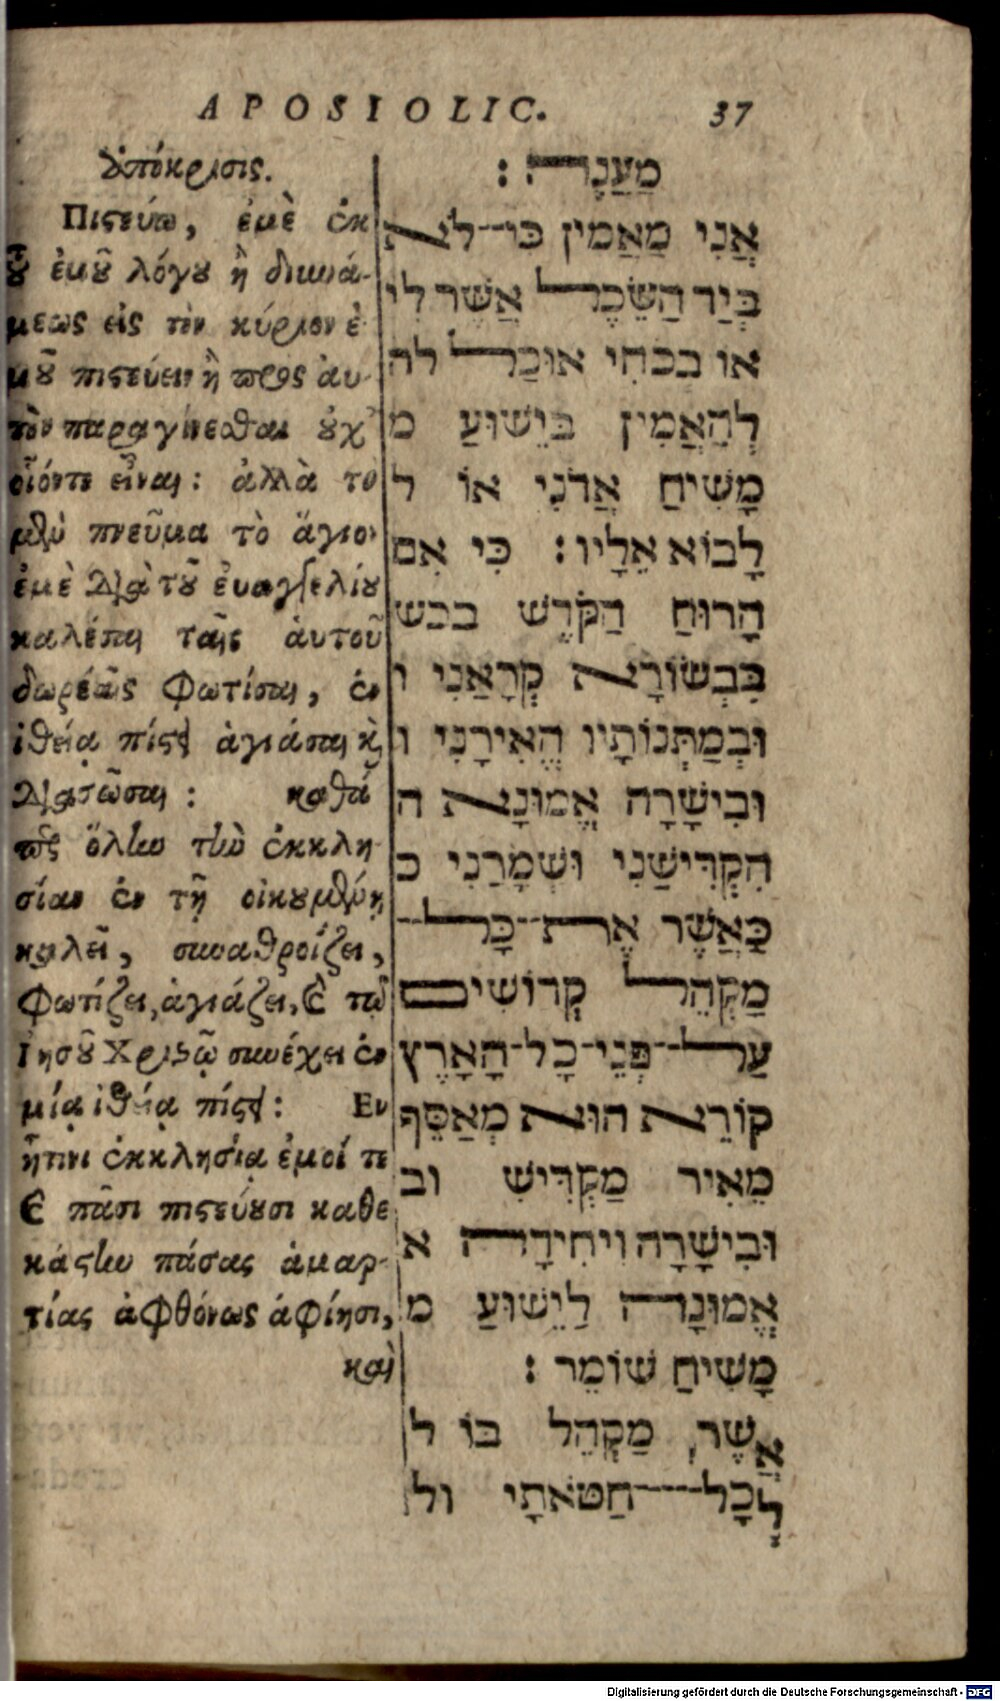 APOSIOLIC. 37
Ὑπόκρισις.
Πιςεύω, ἐμὲ ἐκ
ȣ̃ ἐμȣ̃ λόγȣ ἢ διωά-
μεως εἰς τὸν κύριον ἐ-
μȣ̃ πιςεύειν ἢ πρὸς ἀυ-
τὸν παραγίνεσθαι ȣ̓χ
οἷόντε εἶναι: ἀλλὰ τὸ
μὲν πνεῦμα τὸ ἅγιον
ἐμὲ διὰ τȣ̃ ἐυαγγελίȣ
καλέσαι ταῖς ἀυτοῦ
δωρέαῖς φωτίσαι, ἐν
ἰθείᾳ πίςει ἁγιάσαι καὶ
διασῶσαι: καθά
περ ὅλην τὴν ἐκκλη-
σίαν ἐν τῇ οἰκȣμένῃ
καλεῖ, συναθροίζει,
φωτίζει, ἁγιάζει, καὶ τῷ
Ἰησȣ̃ Χριςῷ συνέχει ἐν
μίᾳ ἰθείᾳ πίςει: Ἐν
ᾗτινι ἐκκλησίᾳ ἐμοί τε
καὶ πᾶσι πιςεύȣσι καθε
κάςην πάσας ἁμαρ-
τίας ἀφθόνως ἀφίησι,
καὶ
מַעֲנֶה :
אֲנִי מַאֲמִין כִּי־לֹא
בְּיַד הַשֵּׂכֶל אֲשֶׁר לִי
או בכחי אוּכַל לה
לְהַאֲמִין בְּיֵשׁוּעַ מ
מָשִׁיחַ אֲדֹנִי אוֹ ל
לָבוֹא אֵלָיו : כִּי אִם
הָרוּחַ הַקֹּדֶשׁ בבש
בִּבְשׂוֹרָא קְרָאַנִי ו
וּבְמַתְּנוֹתָיו הֱאִירָנִי ו
וּבִישָׁרָה אֱמוּנָא ה
הִקְדִּישַׁנִי וּשְׁמָרַנִי כ
כַּאֲשֶׁר אֶת־כָּל־
מַקְהֵל קְדוֹשִׁים
עַל־פְּנֵי־כָל־הָאָרֶץ
קוֹרֵא הוּא מְאַסֵּף
מֵאִיר מַקְדִּישׁ וב
וּבִישָׁרָה וִיחִידָה א
אֱמוּנָה לַיֵשׁוּעַ מ
מָשִׁיחַ שׁוֹמֵר :
אֲשֶׁר מַקְהֵל בּוֹ ל
לְכָל־חַטֹּאתָי ול